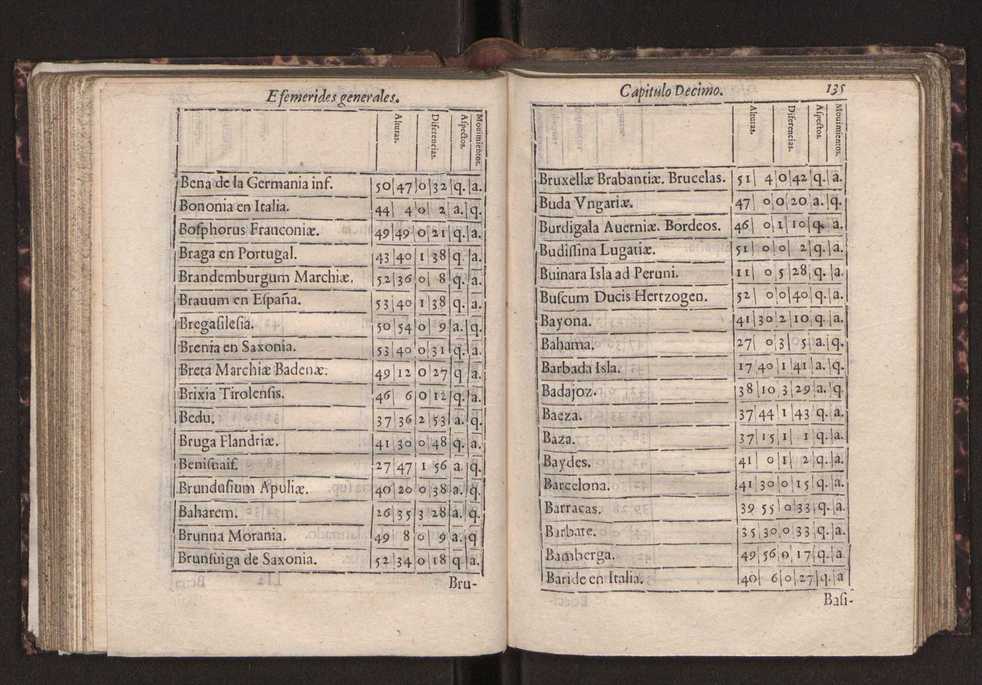 Efemerides generales.
Alturas. Diferencias. Aspectos. Mouimientos.
Bena de la Germania inf. 50 47 0 32 q. a.
Bononia en Italia. 44 4 0 2 a. q.
Bosphorus Franconiæ. 49 49 0 21 q. a.
Braga en Portugal. 43 40 1 38 q. a.
Brandemburgum Marchiæ. 52 36 0 8 q. a.
Brauum en España. 53 40 1 38 q. a.
Bregasilesia. 50 54 0 9 a. q.
Brenia en Saxonia. 53 40 0 31 q. a.
Breta Marchiæ Badenæ. 49 12 0 27 q a.
Brixia Tirolensis. 46 6 0 12 q. a.
Bedu. 37 36 2 53 a. q.
Bruga Flandriæ. 41 30 0 48 q. a.
Benisuaif. 27 47 1 56 a. q.
Brundusium Apuliæ. 40 20 0 38 a. q.
Baharem. 26 35 3 28 a. q.
Brunna Morania. 49 8 0 9 a. q
Brunsuiga de Saxonia. 52 34 0 18 q a.
Bru-
Capitulo Decimo. 135
Alturas. Diferencias. Aspectos. Mouimientos.
Bruxellæ Brabantiæ. Brucelas. 51 4 0 42 q. a.
Buda Vngariæ. 47 0 0 20 a. q.
Burdigala Auerniæ. Bordeos. 46 0 1 10 q. a.
Budissina Lugatiæ. 51 0 0 2 q. a.
Buinara Isla ad Peruni. 11 0 5 28 q. a.
Buscum Ducis Hertzogen. 52 0 0 40 q. a.
Bayona. 41 30 2 10 q. a.
Bahama. 27 0 3 5 a. q.
Barbada Isla. 17 40 1 41 a. q.
Badajoz. 38 10 3 29 a. q
Baeza. 37 44 1 43 q. a.
Baza. 37 15 1 1 q. a.
Baydes. 41 0 1 2 q. a.
Barcelona. 41 30 0 15 q. a.
Barracas. 39 55 0 33 q. a.
Barbate. 35 30 0 33 q. a.
Bamberga. 49 56 0 17 q. a
Baride en Italia. 40 6 0 27 q. a
Basi-